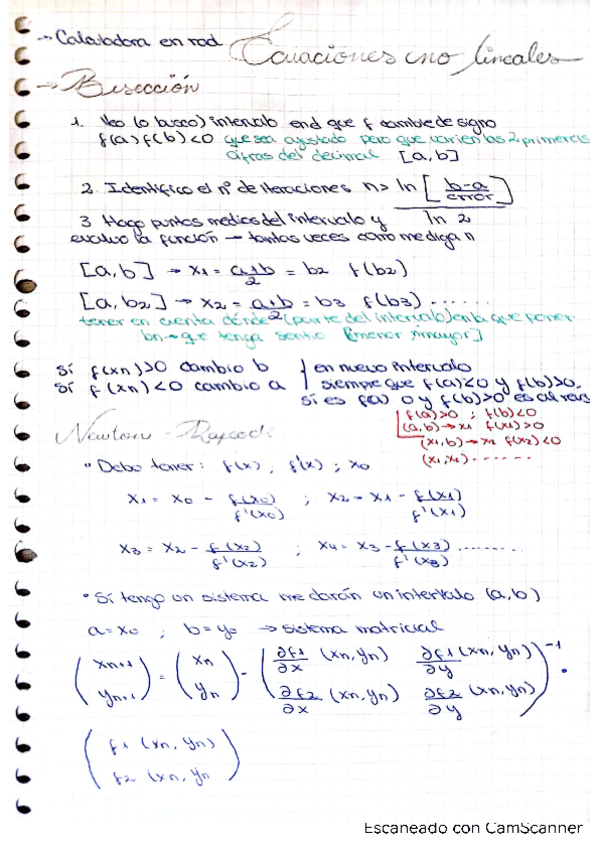 → Calculadora en rad
Ecuaciones no lineales
→ Bisección
1. Veo (o busco) intervalo en el que f cambie de signo
f(a) f(b) < 0 que sea ajustado pero que varíen las 2 primeras
cifras del decimal [a,b]
2. Identifico el nº de iteraciones n > ln [ (b-a)/error ] / ln 2
3 Hago puntos medios del intervalo y
evaluo la función → tantas veces como me diga n
[a,b] → x1 = a+b/2 = b2 f(b2)
[a,b2] → x2 = a+b/2 = b3 f(b3) ......
tener en cuenta dónde (parte del intervalo) en la que poner
bn → que tenga sentido [menor, mayor]
Sí f(xn)>0 cambio b } en nuevo intervalo
Sí f(xn)<0 cambio a } siempre que f(a)<0 y f(b)>0,
sí es f(a) 0 y f(b)>0 es al reves
f(a)>0 ; f(b)<0
(a,b) → x1 f(x1)>0
(x1,b) → x2 f(x2)<0
(x1,x2) ......
Newton -
• Debo tener: f(x), f'(x) ; x0
x1 = x0 - f(x0)/f'(x0) ; x2 = x1 - f(x1)/f'(x1)
x3 = x2 - f(x2)/f'(x2) ; x4 = x3 - f(x3)/f'(x3) .......
• Sí tengo un sistema me darán un intervalo (a,b)
a = x0 ; b = y0 → sistema matricial
(xn+1 yn+1) = (xn yn) - (∂f1/∂x (xn,yn) ∂f1/∂y (xn,yn) ∂f2/∂x (xn,yn) ∂f2/∂y (xn,yn))^-1 •
(f1 (xn, yn) f2 (xn, yn)
Escaneado con CamScanner